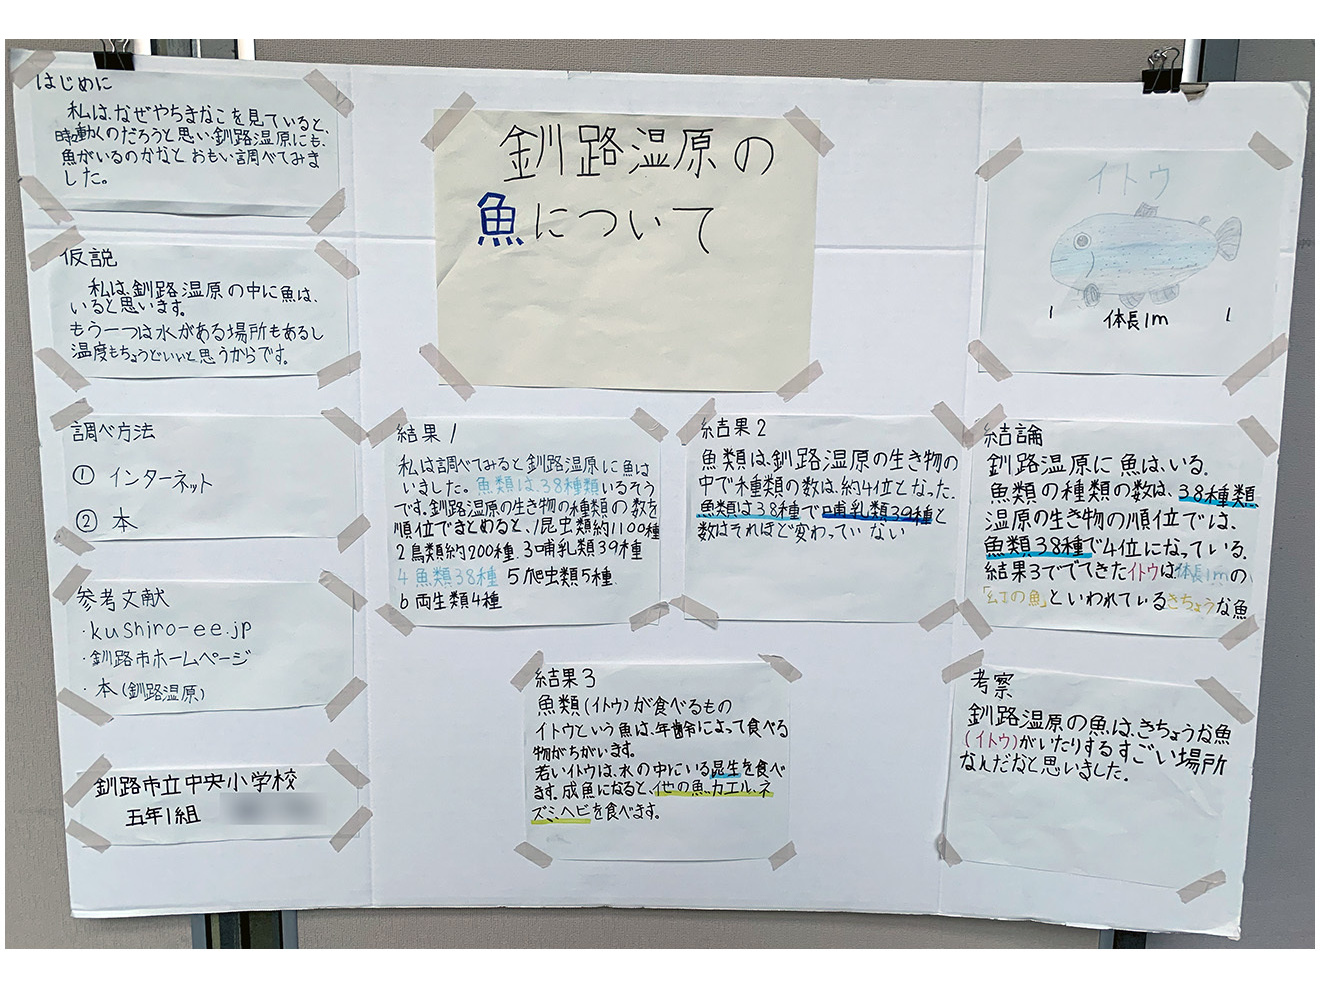 釧路湿原の
魚について
はじめに
私は、なぜやちまなこを見ていると、
時動くのだろうと思い、釧路湿原にも、
魚がいるのかなと おもい調べてみま
した。
仮説
私は、釧路湿原の中に魚は、
いると思います。
もう一つは水がある場所もあるし
温度もちょうどいいと思うからです。
調べ方法
① インターネット
② 本
参考文献
・kushiro-ee.jp
・釧路市ホームページ
・本(釧路湿原)
釧路市立中央小学校
五年1組
結果1
私は調べてみると釧路湿原に魚は
いました。魚類は、38種類いるそう
です。釧路湿原の生き物の種類の数を
順位でまとめると、1昆虫類約1100種
2鳥類約200種、3哺乳類39種
4魚類38種 5爬虫類5種
6両生類4種
結果2
魚類は、釧路湿原の生き物の
中で種類の数は、約4位となった。
魚類は38種で哺乳類39種と
数はそれほど変わってい ない
結果3
魚類(イトウ)が食べるもの
イトウという魚は、年齢によって食べる
物がちがいます。
若いイトウは、水の中にいる昆生を食べ
ます。成魚になると、他の魚、カエル、ネ
ズミ、ヘビを食べます。
イトウ
体長1m
結論
釧路湿原に 魚は、いる。
魚類の種類の数は、38種類
湿原の生き物の順位では、
魚類38種で4位になっている。
結果3ででてきたイトウは、体長1mの
「幻の魚」といわれているきちょうな魚
考察
釧路湿原の魚は、きちょうな魚
(イトウ)がいたりするすごい場所
なんだなと思いました。